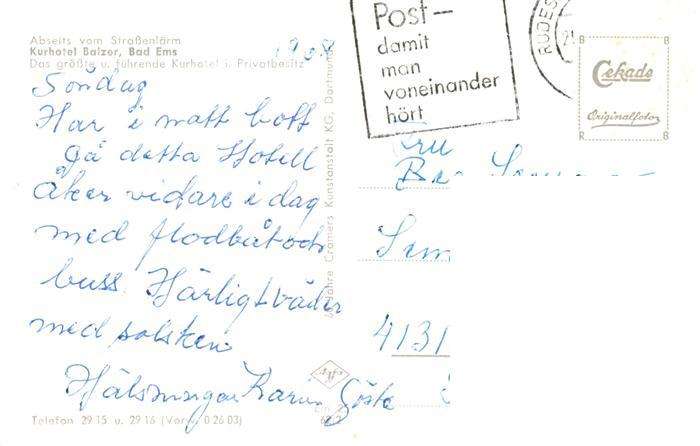 Abseits vom Straßenlärm
Kurhotel Balzer, Bad Ems
Das größte u. führende Kurhotel i. Privatbesitz
Söndag
Har i natt bott
på detta Hotell
åker vidare i dag
med flodbåt och
buss. Härligt väder
med solsken
Hälsningar Karin Gösta
Telefon 29 15 u. 29 16 (Vorw. 0 26 03)
Jahre Cramers Kunstanstalt KG, Dortmund
Post –
damit
man
voneinander
hört
RÜDES
Cekade
Originalfoto
4131